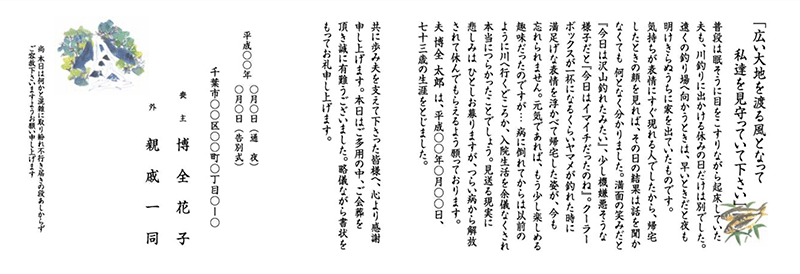 「広い大地を渡る風となって
私達を見守っていて下さい」
普段は眠そうに目をこすりながら起床していた
夫も、川釣りに出かける休みの日だけは別でした。
遠くの釣り場へ向かうときは、早いときだと夜も
明けきらぬうちに家を出ていたものです。
気持ちが表情にすぐ現れる人でしたから、帰宅
したときの顔を見れば、その日の結果は話を聞か
なくても 何となく分かりました。満面の笑みだと
『今日は沢山釣れたみたい』、少し機嫌悪そうな
様子だと『今日はイマイチだったのね』。クーラー
ボックスが一杯になるくらいヤマメが釣れた時に
満足げな表情を浮かべて帰宅した姿が、今も
忘れられません。元気であれば、もう少し楽しめる
趣味だったのですが…病に倒れてからは以前の
ように川へ行くどころか、入院生活を余儀なくされ
本当につらかったことでしょう。見送る現実に
悲しみは ひとしお募りますが、つらい病から解放
されて休んでもらえるよう願っております。
夫 博全 太郎 は、平成〇〇年〇月〇〇日、
七十三歳の生涯をとじました。
共に歩み夫を支えて下さった皆様へ、心より感謝
申し上げます。本日はご多用の中、ご会葬を
頂き誠に有難うございました。略儀ながら書状を
もってお礼申し上げます。
平成〇〇年 〇月〇〇日（通 夜）
〇月〇〇日（告別式）
千葉市〇〇区〇〇町〇丁目〇ー〇
喪 主 博 全 花 子
外 親 戚 一 同
尚 本日は何かと混雑に取り紛れ不行き届きの段あしからず
ご容赦下さいますようお願い申し上げます